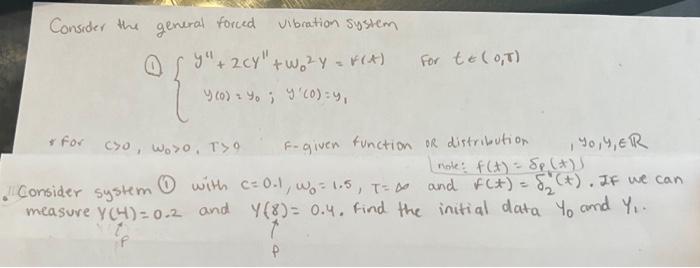 Consider the general forced vibration system
① { y" + 2cy" + ω₀²y = F(t) For t∈(0,T)
y(0) = y₀ ; y'(0) = y₁
* for c>0, ω₀>0, T>0 F-given function OR distribution , y₀, y₁ ∈ ℝ
note: f(t) = δp(t)
• Consider system ① with c=0.1, ω₀=1.5, T=∞ and F(t) = δ₂(t). If we can
measure Y(4)=0.2 and Y(8)=0.4. Find the initial data y₀ and y₁.
↑p ↑
p